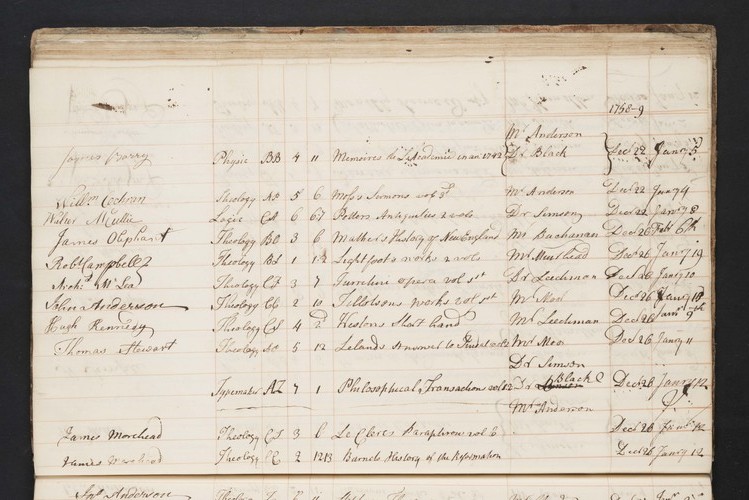 1758-9
Mr Anderson
James Barry Physic BB 4 11 Memoires de L'Academie in an 1742 Dr Black Decr 22 Janry 5
Willm Cochran Theology 5 6 Moss's Sermons vol 3d Mr Anderson Decr 22 Janry 4
Walter McCullie Logic 6 67 Potters Antiquities 2 vols Dr Simson Decr 22 Janry 8
James Oliphant Theology 3 6 Mather's History of New England Mr Buchanan Decr 26 Feb 6th
Robt Campbell Theology 1 12 Lightfoots works 2 vols Mr Muirhead Decr 26 Janry 19
McLea Theology 3 7 Turretini opera vol 1st Dr Leechman Decr 26 Janry 10
John Anderson Theology 2 10 Tillotsons works vol 1st Mr Moor Decr 26 Janry 18
Hugh Kennedy Theology 4 2 Westons Short hand Mr Leechman Decr 26 Janr 9th
Thomas Stewart Theology 5 12 Lelands Answer to Tindal vol 2 Mr Moor Decr 26 Janry 11
Dr Simson
Typemaker AZ 7 1 Philosophical Transactions vol 12 Dr Black Decr 28 Janry 12
Mr Anderson
James Morehead Theology 3 6 Le Clercs Paraphrase vol 6 Decr 28 Janry 12
James Theology 2 1213 Burnets History of the Reformation Decr 28 Janry 12
Jon Anderson Theology